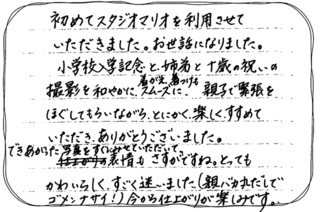 初めてスタジオマリオを利用させて
いただきました。お世話になりました。
小学校入学記念と、姉弟と十歳の祝いの
撮影を和やかに、着がえ、着つけもスムーズに、親子で緊張を
ほぐしてもらいながら、とにかく、楽しく、すすめて
いただき、ありがとうございました。
できあがった写真をすぐにみせていただいて、
表情も さすがですね。とっても
かわいらしく、すごく迷いました(親バカ丸だしで
ゴメンナサイ!)今から仕上がりが楽しみです。